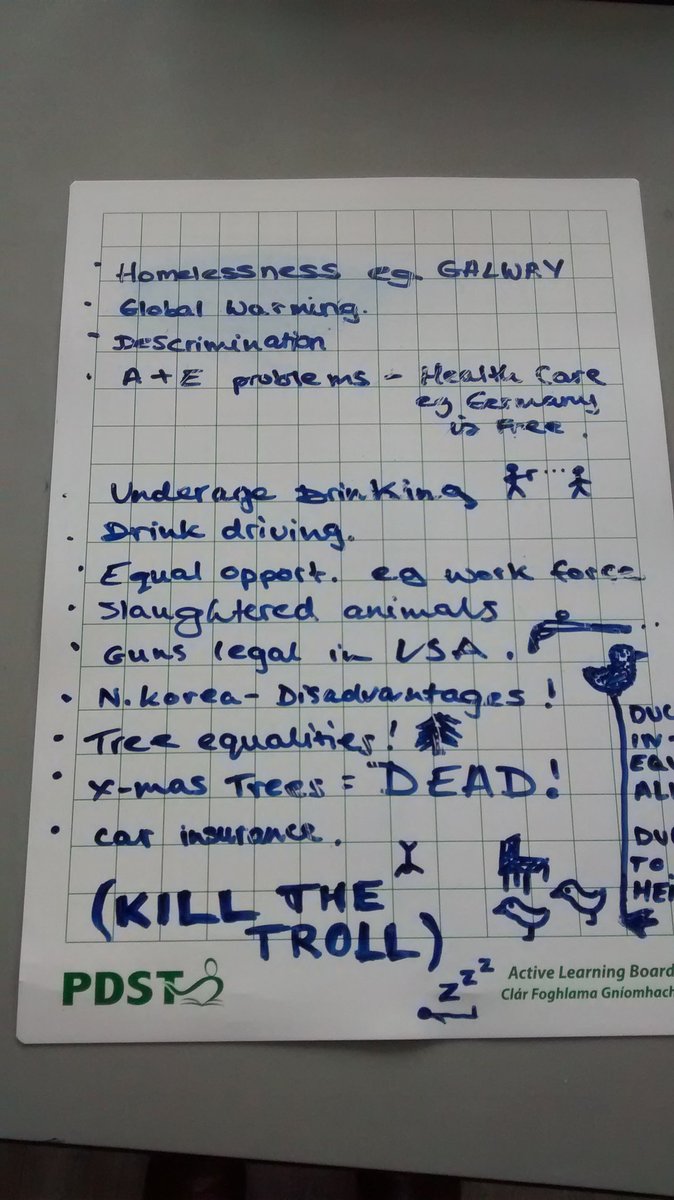 · Homelessness eg. GALWAY
· Global Warming.
- Descrimination
· A + E problems - Health Care
eg Germany
is Free.
· Underage Drinking
· Drink driving.
· Equal opport. eg work force
· Slaughtered animals
· Guns legal in USA.
· N. Korea - Disadvantages!
· Tree equalities!
· X-mas Trees = "DEAD!
· car insurance.
(KILL THE
TROLL)
DUC
IN-
EQU
ALI
DU
TO
HE
zzz
PDST
Active Learning Board
Clár Foghlama Gníomhach